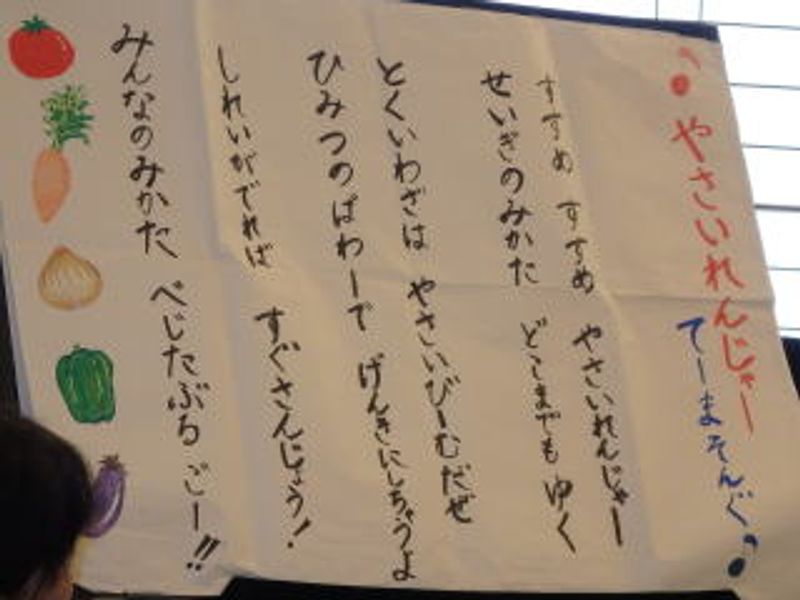 ♪やさいれんじゃー てーまそんぐ♪
すすめ すすめ やさいれんじゃー
せいぎのみかた どこまでも ゆく
とくいわざは やさいびーむだぜ
ひみつのぱわーで げんきにしちゃうよ
しれいがでれば すぐさんじょう!
みんなのみかた べじたぶる ごー!!